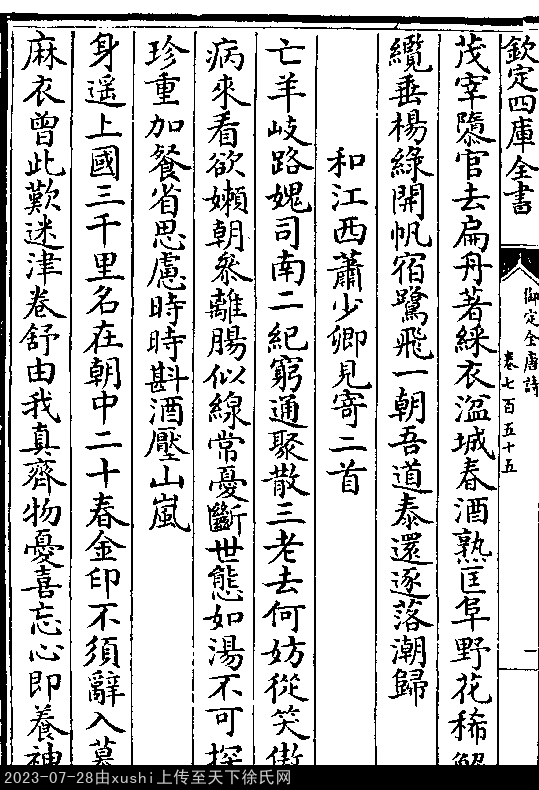 欽定四庫全書
御定全唐詩
卷七百五十五
一
茂宰隳官去扁舟著綵衣湓城春酒熟匡阜野花稀解
纜垂楊綠開帆宿鷺飛一朝吾道泰還逐落潮歸
和江西蕭少卿見寄二首
亡羊岐路媿司南二紀窮通聚散三老去何妨從笑傲
病來看欲嬾朝參離腸似線常憂斷世態如湯不可探
珍重加餐省思慮時時斟酒壓山嵐
身遥上國三千里名在朝中二十春金印不須辭入幕
麻衣曾此歎迷津卷舒由我真齊物憂喜忘心即養神
2023-07-28由xushi上传至天下徐氏网